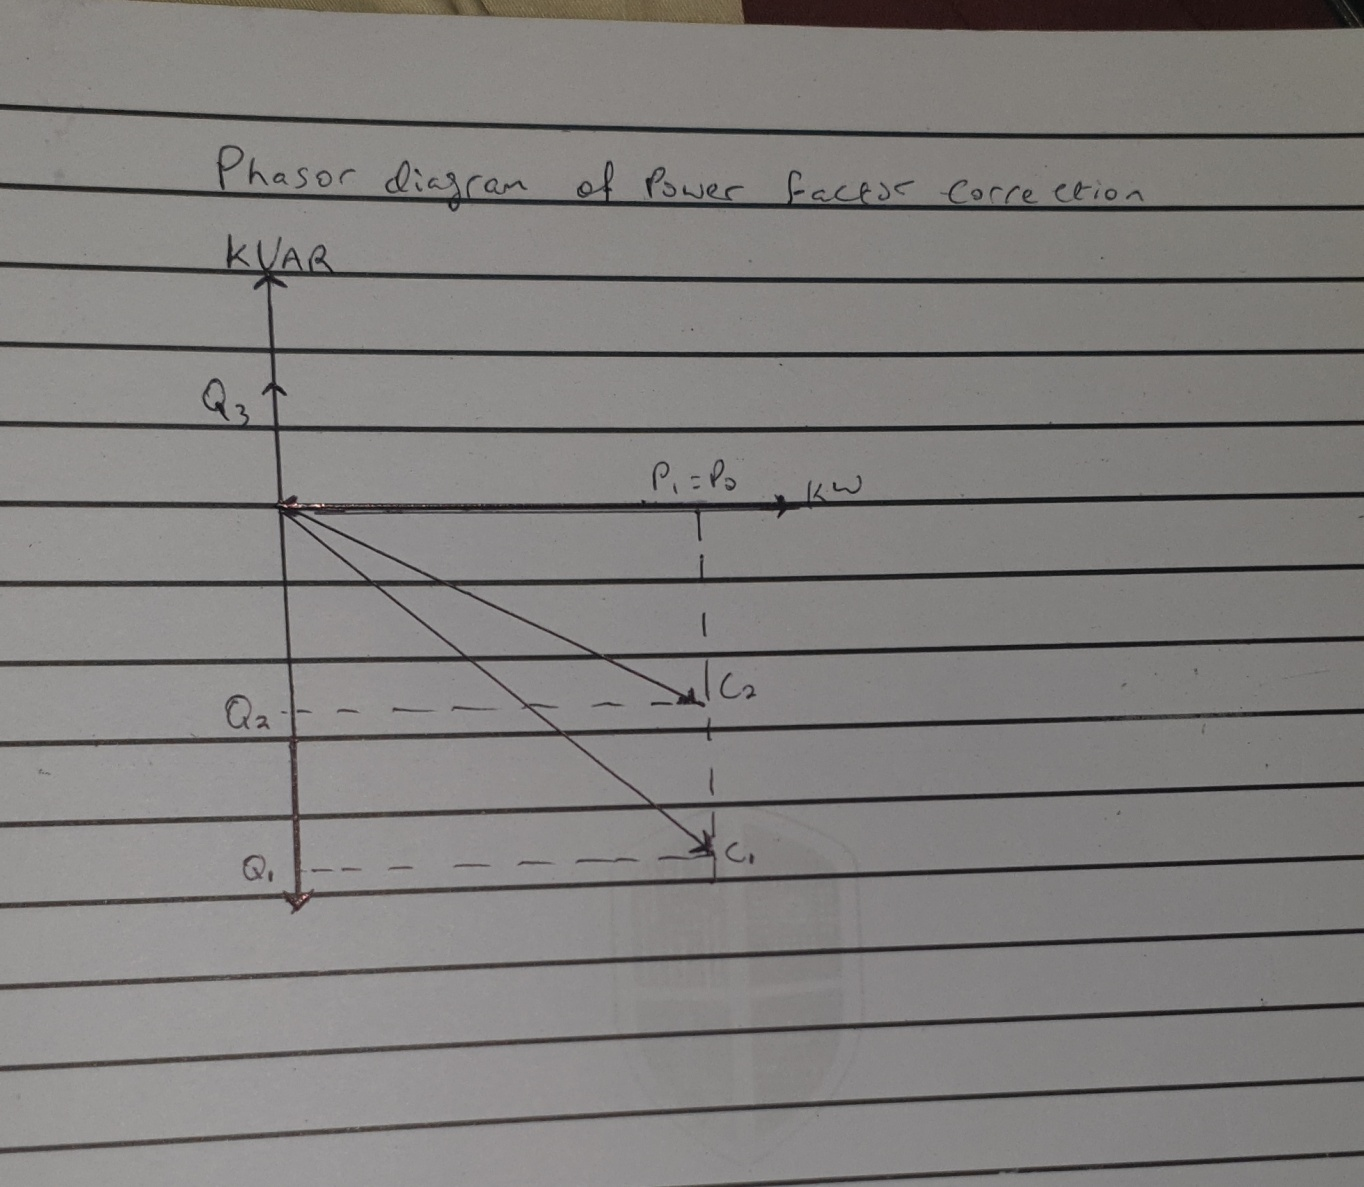 Phasor diagram of Power factor correction
KVAR
Q3
P1 = P2
KW
C2
Q2
Q1
C1